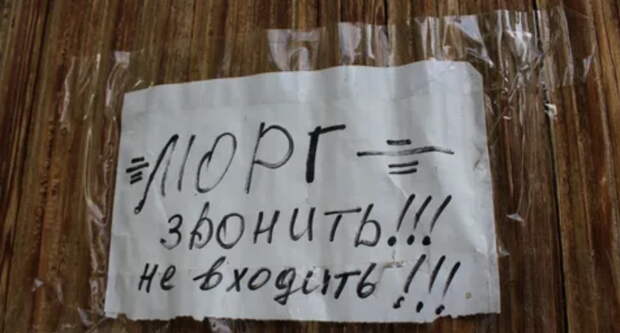 МОРГ
ЗВОНИТЬ!!!
не входить!!!